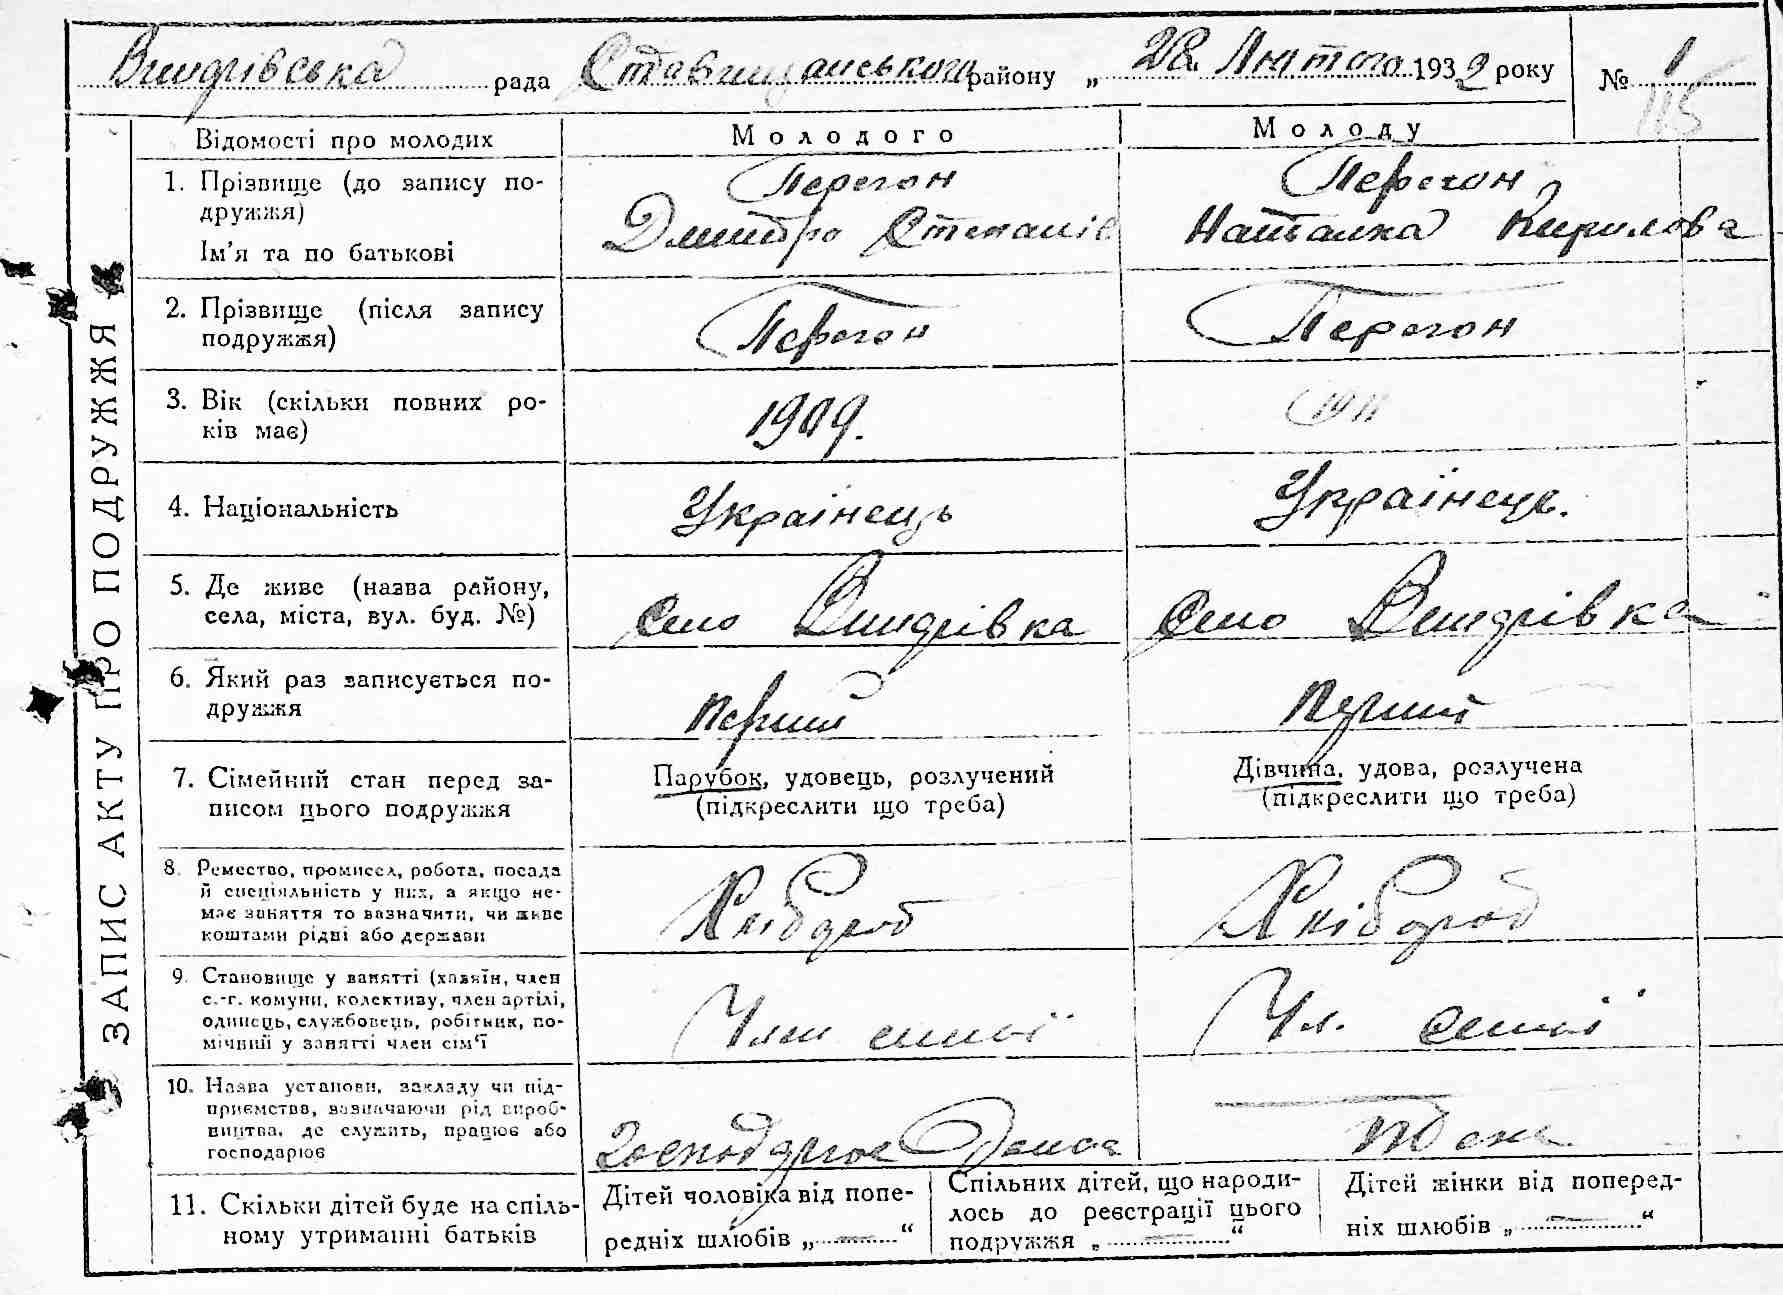 Виндрівська рада Ставищанського району „ 28 Лютого 1932 року № 1
115
ЗАПИС АКТУ ПРО ПОДРУЖЖЯ
Відомості про молодих
Молодого
Молоду
1. Прізвище (до запису по-
дружжя)
Ім'я та по батькові
Перегон
Дмитро Степанів
Перегон
Наталка Кирилова
2. Прізвище (після запису
подружжя)
Перегон
Перегон
3. Вік (скільки повних ро-
ків має)
1909.
1911
4. Національність
Українець
Українець.
5. Де живе (назва району,
села, міста, вул. буд. №)
Село Виндрівка
Село Виндрівка
6. Який раз записується по-
дружжя
перший
перший
7. Сімейний стан перед за-
писом цього подружжя
Парубок, удовець, розлучений
(підкреслити що треба)
Дівчина, удова, розлучена
(підкреслити що треба)
8. Ремество, промисел, робота, посада
й спеціяльність у них, а якщо не-
має заняття то вазначити, чи живе
коштами рідні або держави
Хлібороб
Хлібороб
9. Становище у занятті (хазяїн, член
с.-г. комуни, колективу, член артілі,
одинець, службовець, робітник, по-
мічний у занятті член сім'ї
Член сімьї
Чл. сімьї
10. Назва установи, закладу чи під-
приємства, вазначаючи рід вироб-
ництва, де служить, працює або
господарює
Господарює Дома
тоже
11. Скільки дітей буде на спіль-
ному утриманні батьків
Дітей чоловіка від попе-
редніх шлюбів „ — “
Спільних дітей, що народи-
лось до реєстрації цього
подружжя „ — “
Дітей жінки від поперед-
ніх шлюбів „ — “